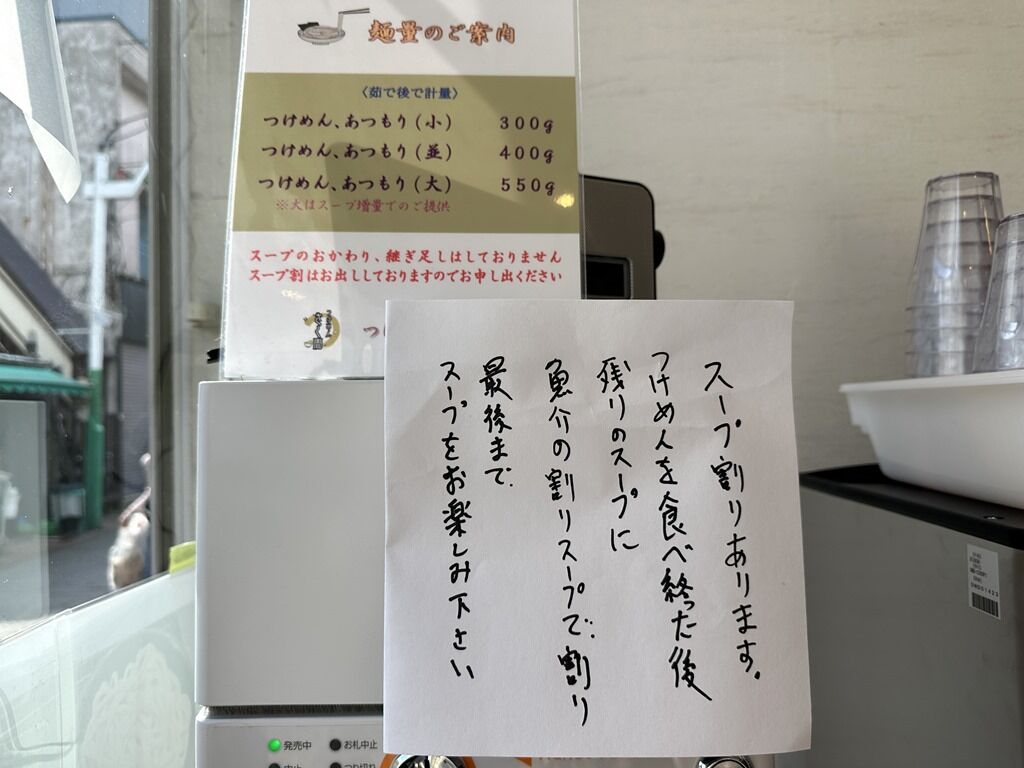 麺量のご案内
〈茹で後で計量〉
つけめん、あつもり(小) 300g
つけめん、あつもり(並) 400g
つけめん、あつもり(大) 550g
※大はスープ増量でのご提供
スープのおかわり、継ぎ足しはしておりません
スープ割はお出ししておりますのでお申し出ください
つ
スープ割りあります。
つけめんを食べ終った後
残りのスープに
魚介の割りスープで、割り
最後まで、
スープをお楽しみ下さい
発売中 お札中止